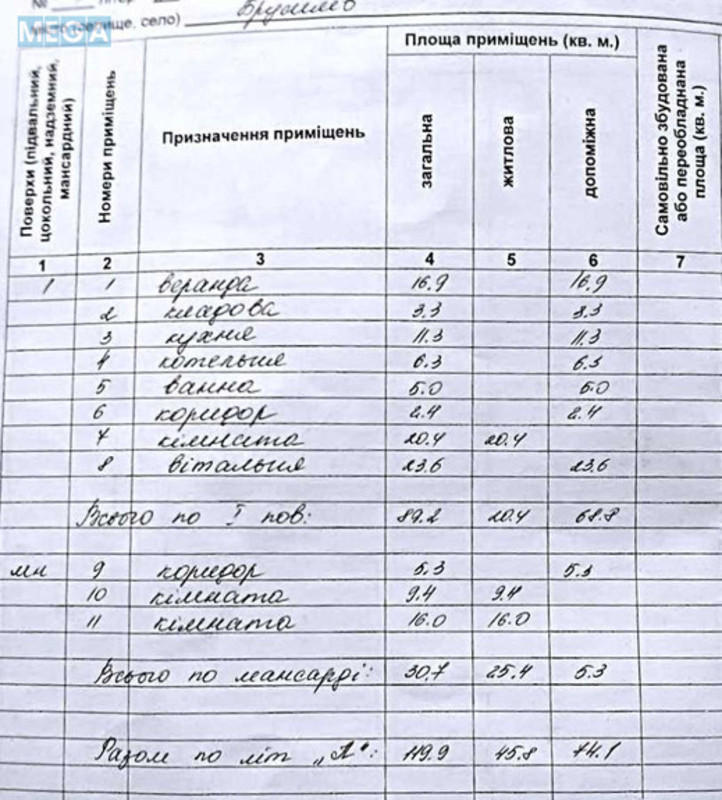 № літер
MEGA
(місто, селище, село) Брусилів
Поверхи (підвальний, цокольний, надземний, мансардний) Номери приміщень Призначення приміщень Площа приміщень (кв. м.) Самовільно збудована або переобладнана площа (кв. м.)
загальна житлова допоміжна
1 2 3 4 5 6 7
1 1 веранда 16.9 16.9
2 кладова 3.3 3.3
3 кухня 11.3 11.3
4 котельня 6.3 6.3
5 ванна 5.0 5.0
6 коридор 2.4 2.4
7 кімната 20.4 20.4
8 вітальня 23.6 23.6
Всього по I пов: 89.2 20.4 68.8
мн 9 коридор 5.3 5.3
10 кімната 9.4 9.4
11 кімната 16.0 16.0
Всього по мансарді: 30.7 25.4 5.3
Разом по літ „А": 119.9 45.8 74.1